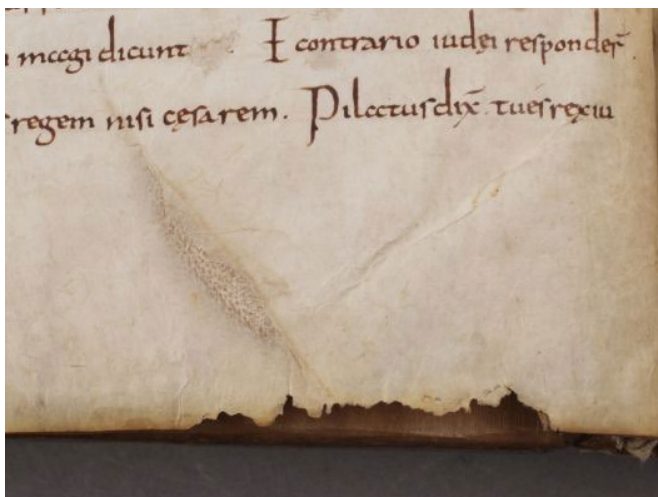 magi dicunt I contrario iudęi responder̄
regem nisi cęsarem. Pilatus dix̄ tu es rex iu